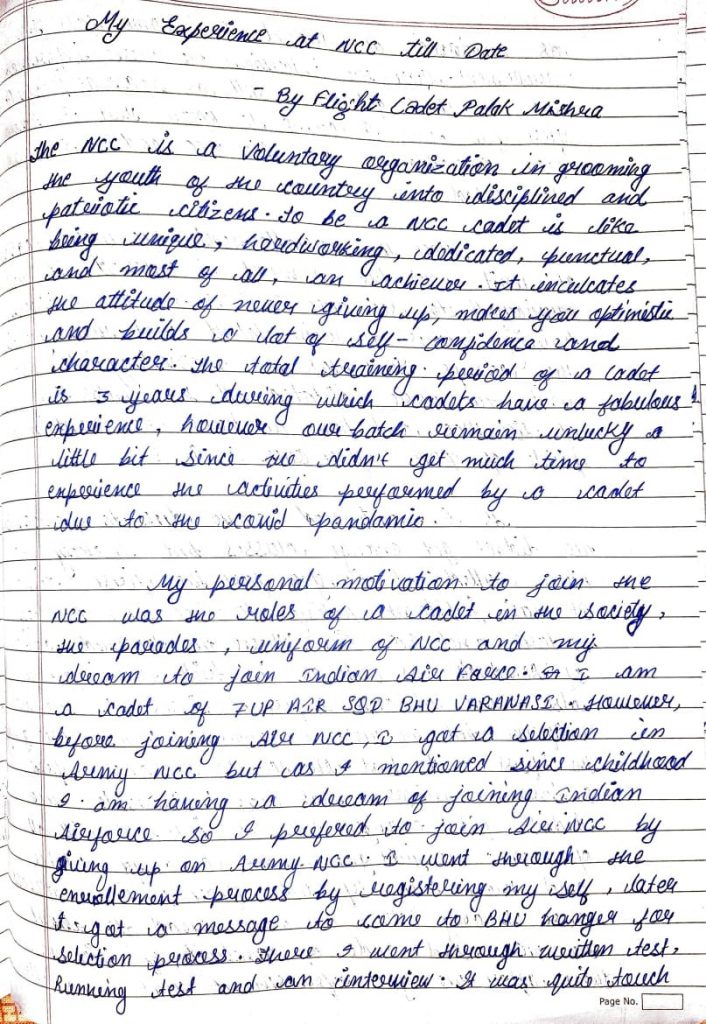 My Experience at NCC till Date
- By Flight Cadet Palak Mishra
the NCC is a voluntary organization in grooming
the youth of the country into disciplined and
patriotic citizens. to be a NCC cadet is like
being unique, hardworking, dedicated, punctual,
and most of all, an achiever. It inculcates
the attitude of never giving up, makes you optimistic
and builds a lot of self-confidence and
character. the total training period of a cadet
is 3 years during which cadets have a fabulous
experience, however our batch remain unlucky a
little bit since we didn't get much time to
experience the activities performed by a cadet
due to the covid pandamic.
My personal motivation to join the
NCC was the roles of a cadet in the society,
the parades, uniform of NCC and my
dream to join Indian Air Force. I am
a cadet of 7 UP AIR SQD BHU VARANASI. However,
before joining Air NCC, I got a selection in
Army NCC but as I mentioned since childhood
I am having a dream of joining Indian
Airforce so I prefered to join Air NCC by
giving up on Army NCC. I went through the
enrollement process by registering my self, later
I got a message to come to BHU hanger for
selection process. There I went through written test,
Running test and an interview. It was quite touch
Page No.